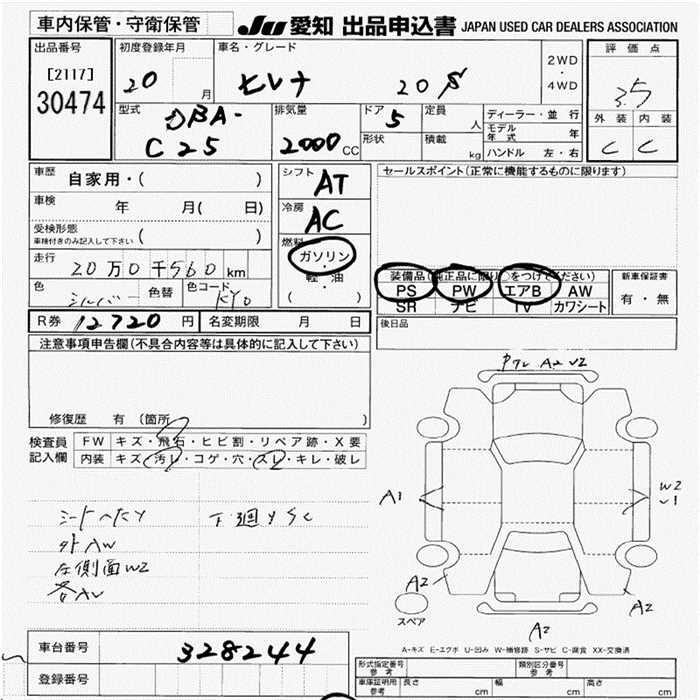 車内保管・守衛保管
JU 愛知 出品申込書 JAPAN USED CAR DEALERS ASSOCIATION
出品番号
[2117]
30474
初度登録年月
20 月
車名・グレード
セレナ 20S
2WD
・
4WD
評価点
3.5
外装 内装
C C
型式
DBA-
C25
排気量
2000 CC
ドア
5
形状
定員
人
積載
kg
ディーラー・並行
モデル年式 年
ハンドル 左・右
車歴
自家用・( )
車検
年 月( 日)
受検形態
車検付きのみ記入して下さい ( )
走行
20万0千560 km
色
シルバー 色替
色コード
KY0
シフト
AT
冷房
AC
燃料
ガソリン
・
軽・油
( )
セールスポイント(正常に機能するものに限ります)
装備品(純正品に限り○をつけてください)
PS PW エアB AW
SR ナビ TV カワシート
新車保証書
有・無
後日品
R券 12720 円
名変期限 月 日
注意事項申告欄(不具合内容等は具体的に記入して下さい)
修復歴 有 (箇所 )
検査員
記入欄
FW キズ・飛石・ヒビ割・リペア跡・X要
内装 キズ・汚レ・コゲ・穴・スレ・キレ・破レ
シートヘタY 下廻YSC
外AW
左側面W2
各AU
A2 U2
A1
W2
U1
A2
A2
A2
スペア
A-キズ E-エクボ U-凹み W-補修跡 S-サビ C-腐食 XX-交換済
車台番号
328244
登録番号
形式指定番号
参考
類別区分番号
参考
車庫証明用
参考
長さ cm
幅 cm
高さ cm